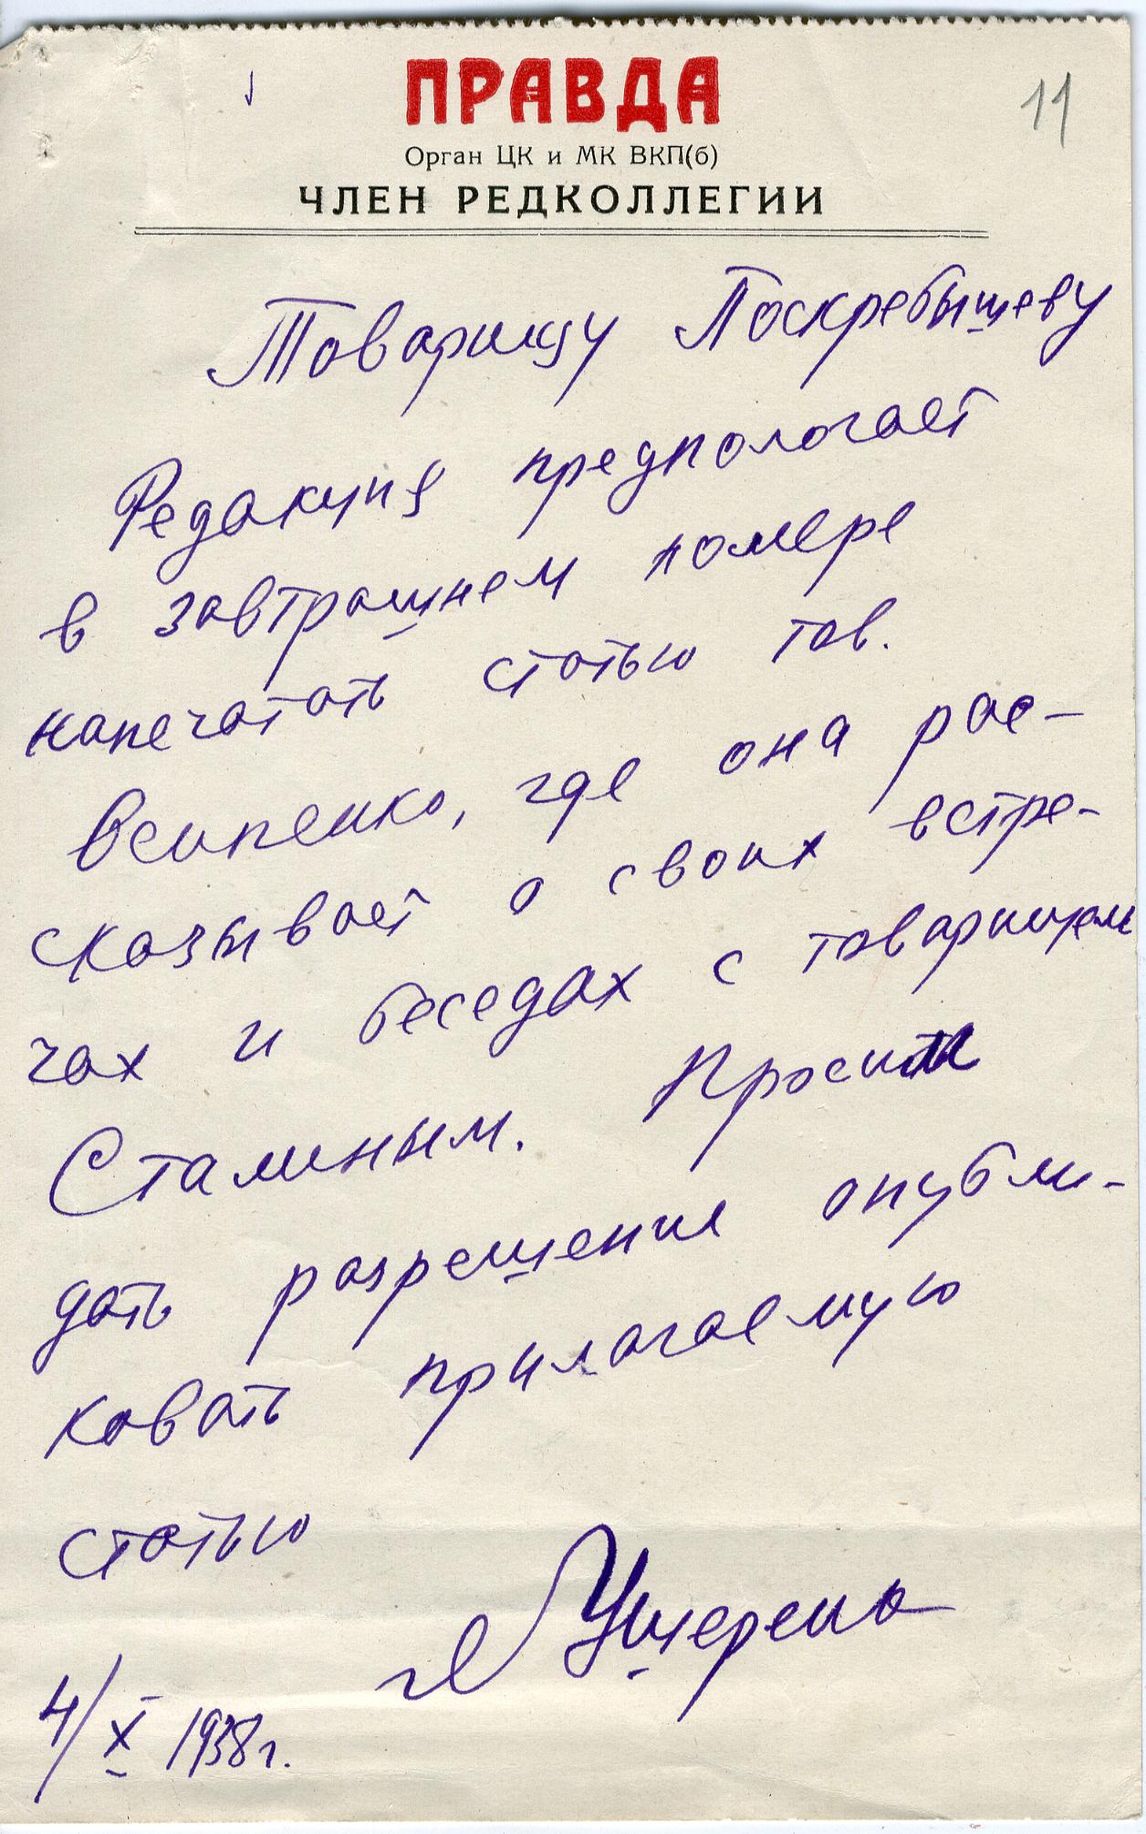 11
ПРАВДА
Орган ЦК и МК ВКП(б)
ЧЛЕН РЕДКОЛЛЕГИИ
Товарищу Поскребышеву
Редакция предпологает
в завтрашнем номере
напечатать статью тов.
Осипенко, где она рас-
сказывает о своих встре-
чах и беседах с товарищем
Сталиным. Просим
дать разрешения опубли-
ковать прилагаемую
статью
4/X 1938г.